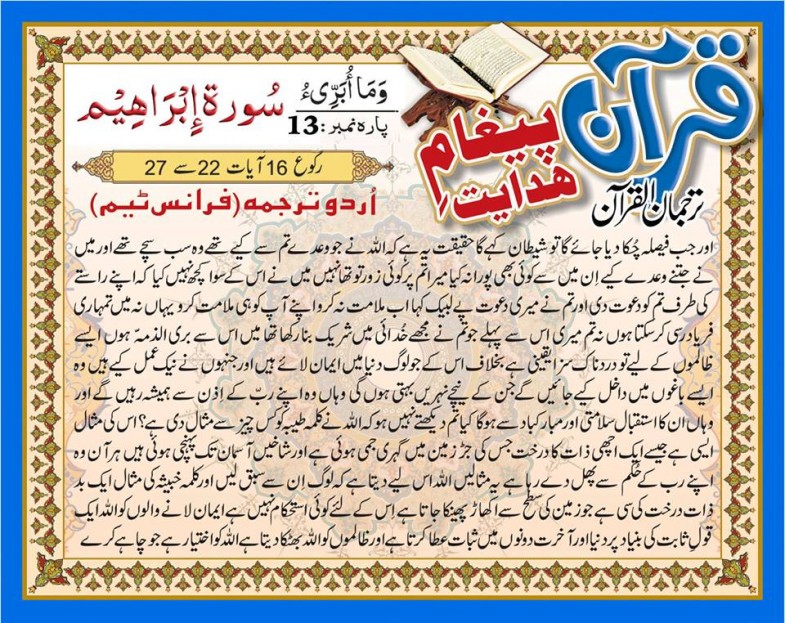 قرآن
پیغامِ
ھدایت
ترجمان القرآن
وَمَا أُبَرِّئُ
پارہ نمبر:13
سُورة إِبْرَاهِيْم
رکوع 16 آیات 22 سے 27
اُردو ترجمہ (فرانس ٹیم)
اور جب فیصلہ چُکا دیا جائے گا تو شیطان کہے گا حقیقت یہ ہے کہ اللہ نے جو وعدے تم سے کیے تھے وہ سب سچے تھے اور میں
نے جتنے وعدے کیے اِن میں سے کوئی بھی پورا نہ کیا میرا تم پر کوئی زور تو تھا نہیں میں نے اس کے سوا کچھ نہیں کیا کہ اپنے راستے
کی طرف تم کو دعوت دی اور تم نے میری دعوت پے لبیک کہا اب ملامت نہ کرو اپنے آپ کو ہی ملامت کرو یہاں نہ میں تمہاری
فریاد رسی کر سکتا ہوں نہ تم میری اس سے پہلے جو تم نے مجھے خُدائی میں شریک بنا رکھا تھا میں اس سے بری الذمہ ہوں ایسے
ظالموں کے لیے تو دردناک سزا یقینی ہے بخلاف اس کے جو لوگ دنیا میں ایمان لائے ہیں اور جنہوں نے نیک عمل کیے ہیں وہ
ایسے باغوں میں داخل کیے جائیں گے جُن کے نیچے نہریں بہتی ہوں گی وہاں وہ اپنے ربّ کے اِذن سے ہمیشہ رہیں گے اور
وہاں ان کا استقبال سلامتی اور مبارکباد سے ہوگا کیا تم دیکھتے نہیں ہو کہ اللہ نے کلمہ طیبہ کو کس چیز سے مثال دی ہے؟ اس کی مثال
ایسی ہے جیسے ایک اچھی ذات کا درخت جس کی جڑ زمین میں گہری جمی ہوئی ہے اور شاخیں آسمان تک پہنچی ہوئی ہیں ہر آن وہ
اپنے رب کے حُکم سے پھل دے رہا ہے یہ مثالیں اللہ اس لیے دیتا ہے کہ لوگ اِن سے سبق لیں اور کلمہ خبیثہ کی مثال ایک بد
ذات درخت کی سی ہے جو زمین کی سطح سے اکھاڑ پھینکا جاتا ہے اِس کے لئے کوئی استحکام نہیں ہے ایمان لانے والوں کو اللہ ایک
قولِ ثابت کی بنیاد پر دنیا اور آخرت دونوں میں ثبات عطا کرتا ہے اور ظالموں کو اللہ بھٹکا دیتا ہے اللہ کو اختیار ہے جو چاہے کرے